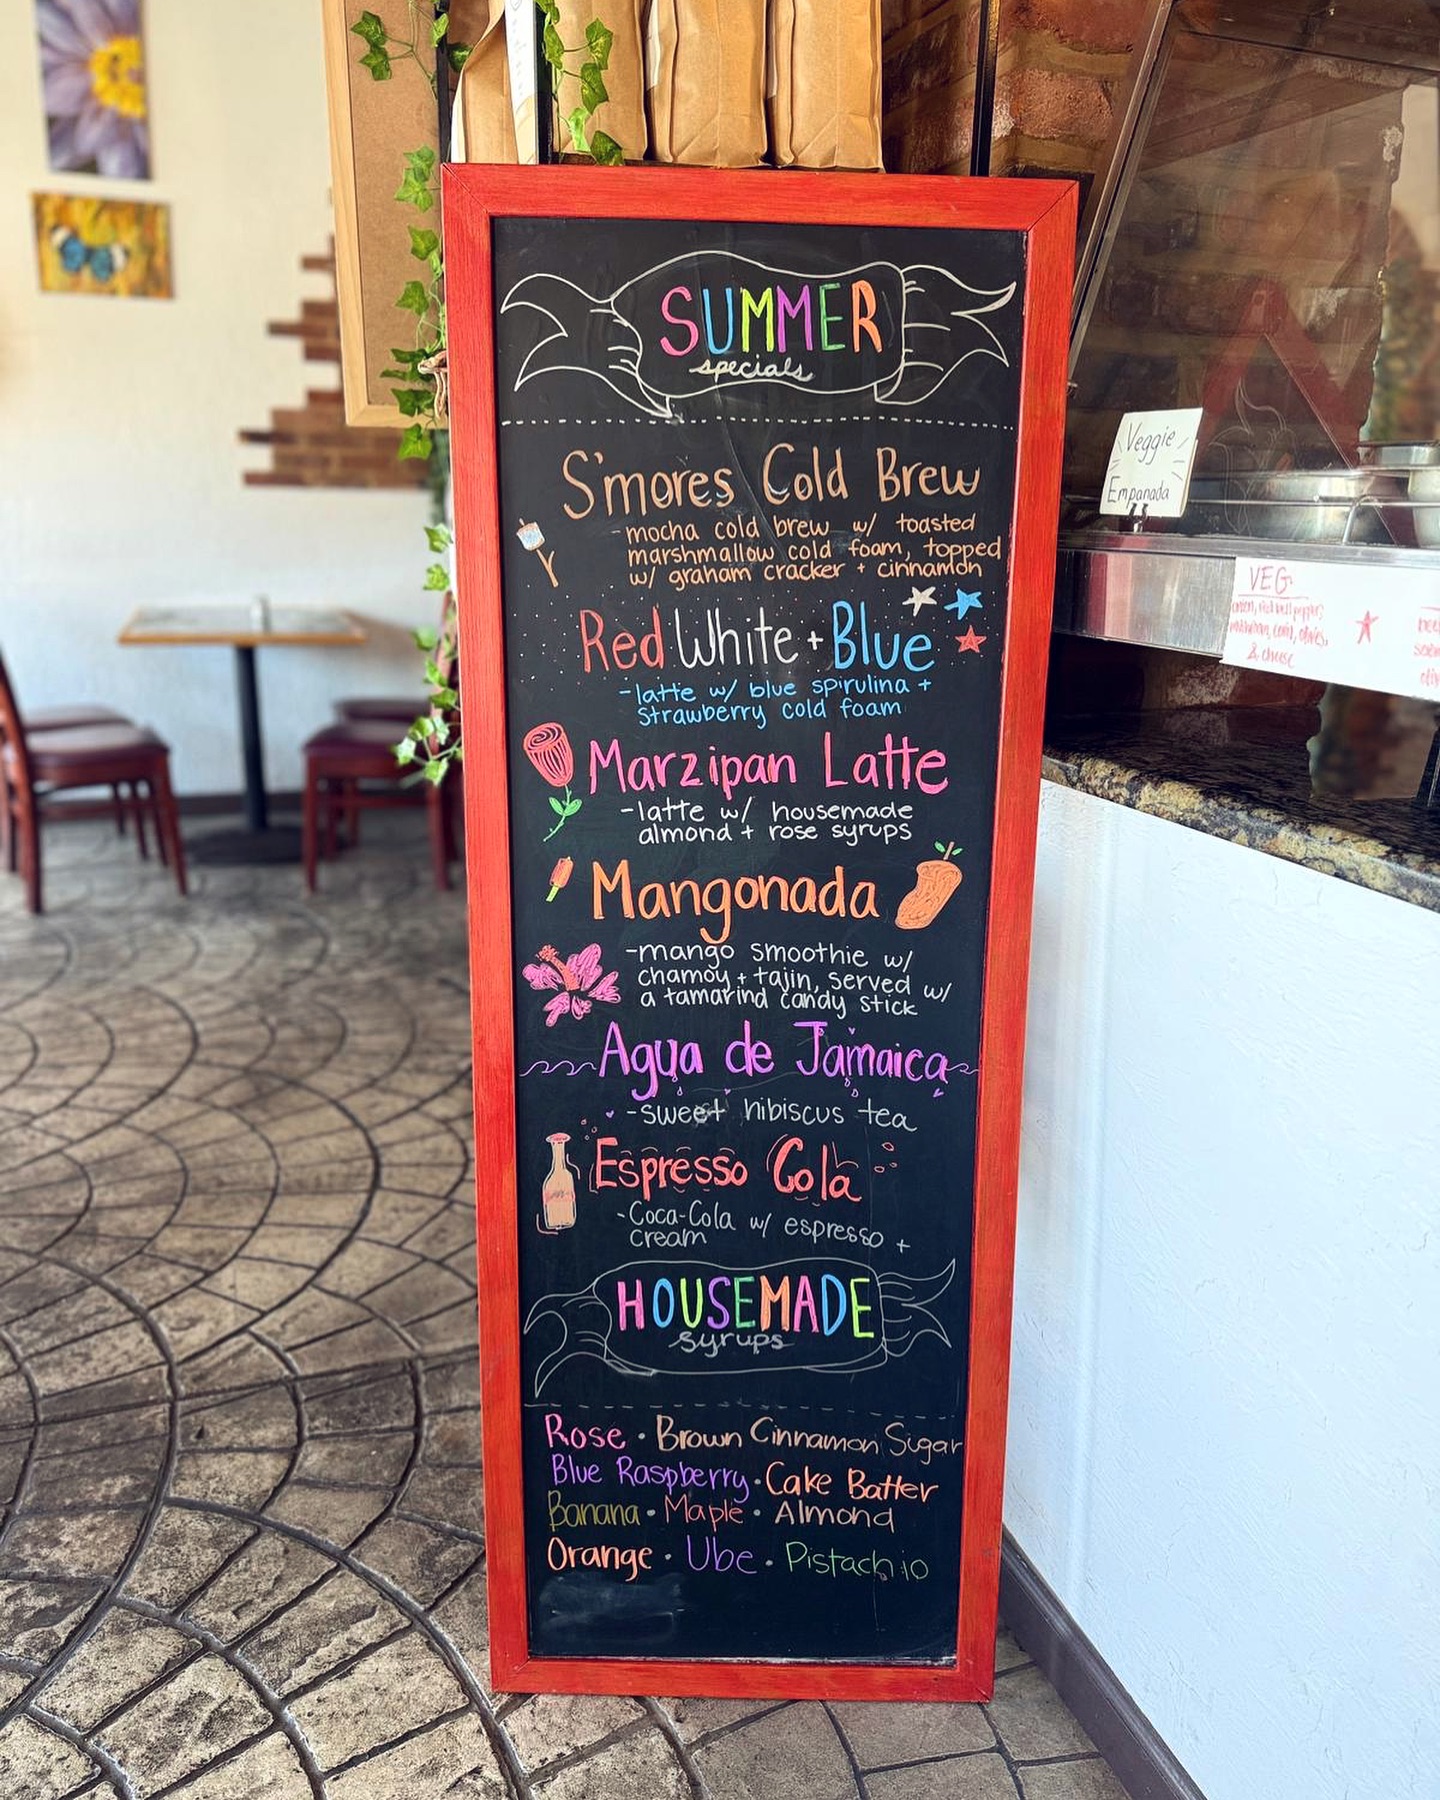 SUMMER
specials
S'mores Cold Brew
-mocha cold brew w/ toasted
marshmallow cold foam, topped
w/ graham cracker + cinnamon
Red White + Blue
-latte w/ blue spirulina +
strawberry cold foam
Marzipan Latte
-latte w/ housemade
almond + rose syrups
Mangonada
-mango smoothie w/
chamoy + tajin, served w/
a tamarind candy stick
Agua de Jamaica
-sweet hibiscus tea
Espresso Cola
-Coca-Cola w/ espresso +
cream
HOUSEMADE
syrups
Rose · Brown Cinnamon Sugar
Blue Raspberry · Cake Batter
Banana · Maple · Almond
Orange · Ube · Pistachio
Veggie
Empanada
VEG
onion, red bell pepper,
corn, olives,
& cheese